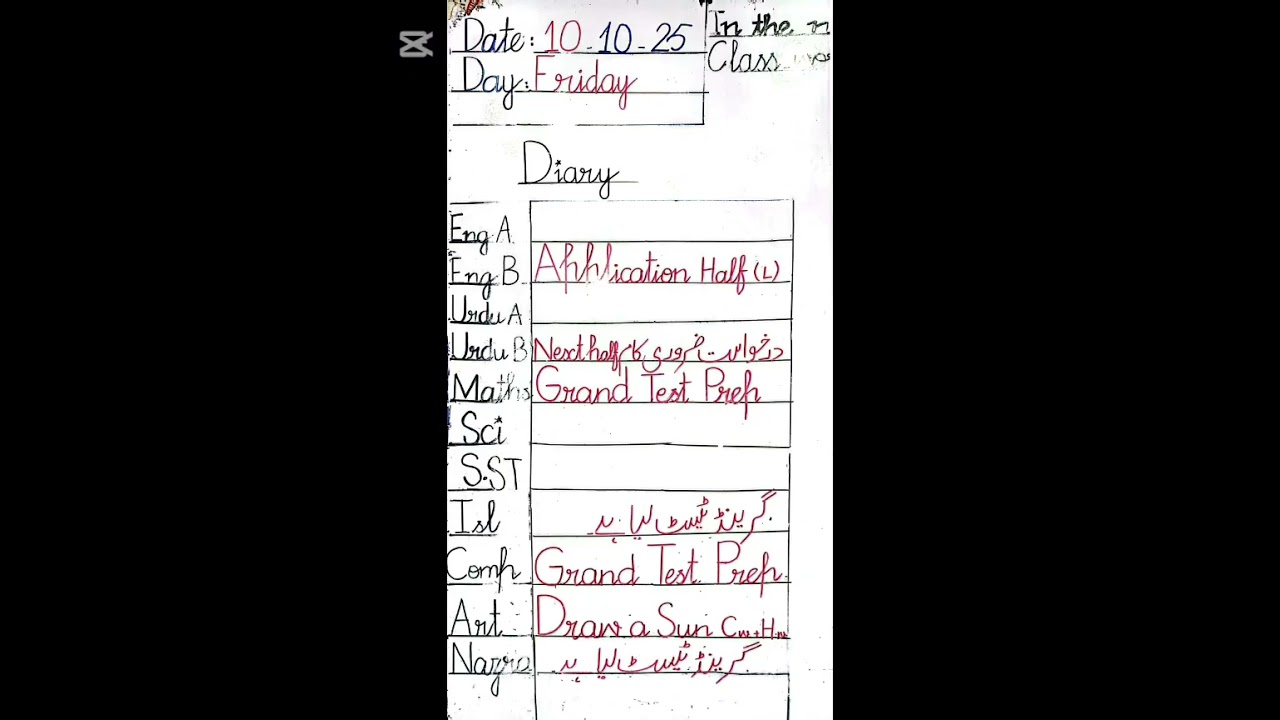 Date: 10-10-25
In the n
Day: Friday
Class
Diary
Eng A
Eng B Application Half (L)
Urdu A
Urdu B Next half درخواست ضروری کام
Maths Grand Test Prep
Sci
S.ST
Isl گرینڈ ٹیسٹ لیا ہے
Comp Grand Test Prep.
Art Draw a Sun C.w+H.w
Nazra گرینڈ ٹیسٹ لیا ہے